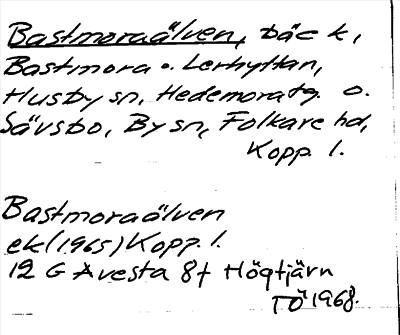 Bastmoraälven, bäck,
Bastmora o. Lerhyttan,
Husby sn, Hedemora tg. o.
Sävsbo, By sn, Folkare hd,
Kopp. l.
Bastmoraälven
ek (1965) Kopp. l.
12 G Avesta 8f Högtjärn
TÖ 1968.